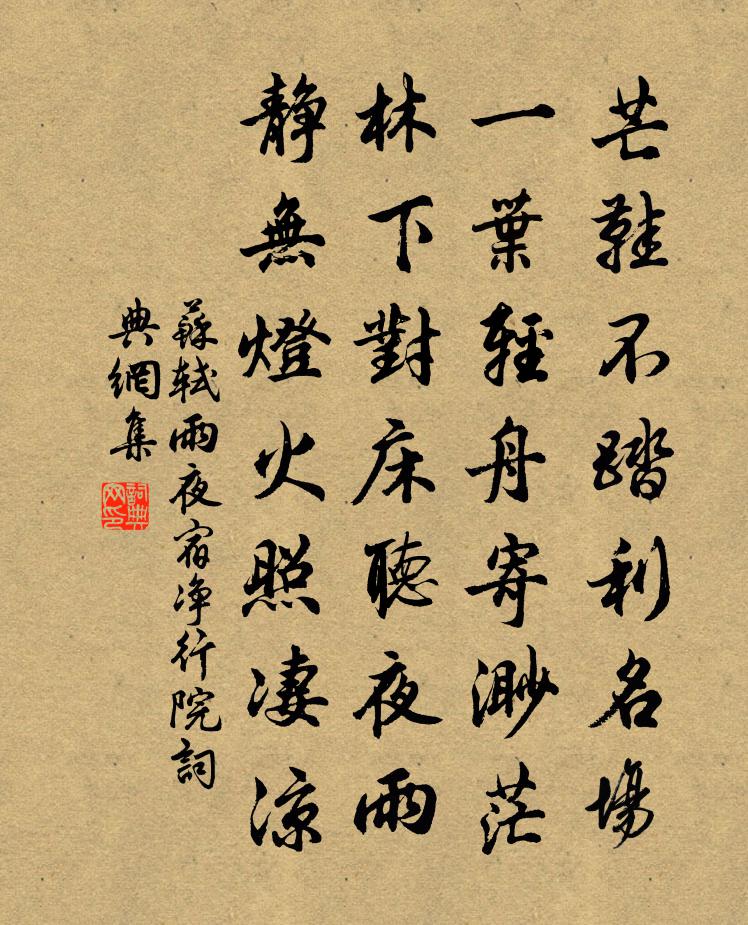 芒鞋不踏利名場
一葉輕舟寄渺茫
林下對床聽夜雨
靜無燈火照凄涼
蘇軾雨夜宿净行院詞
典網集
詞典
网印